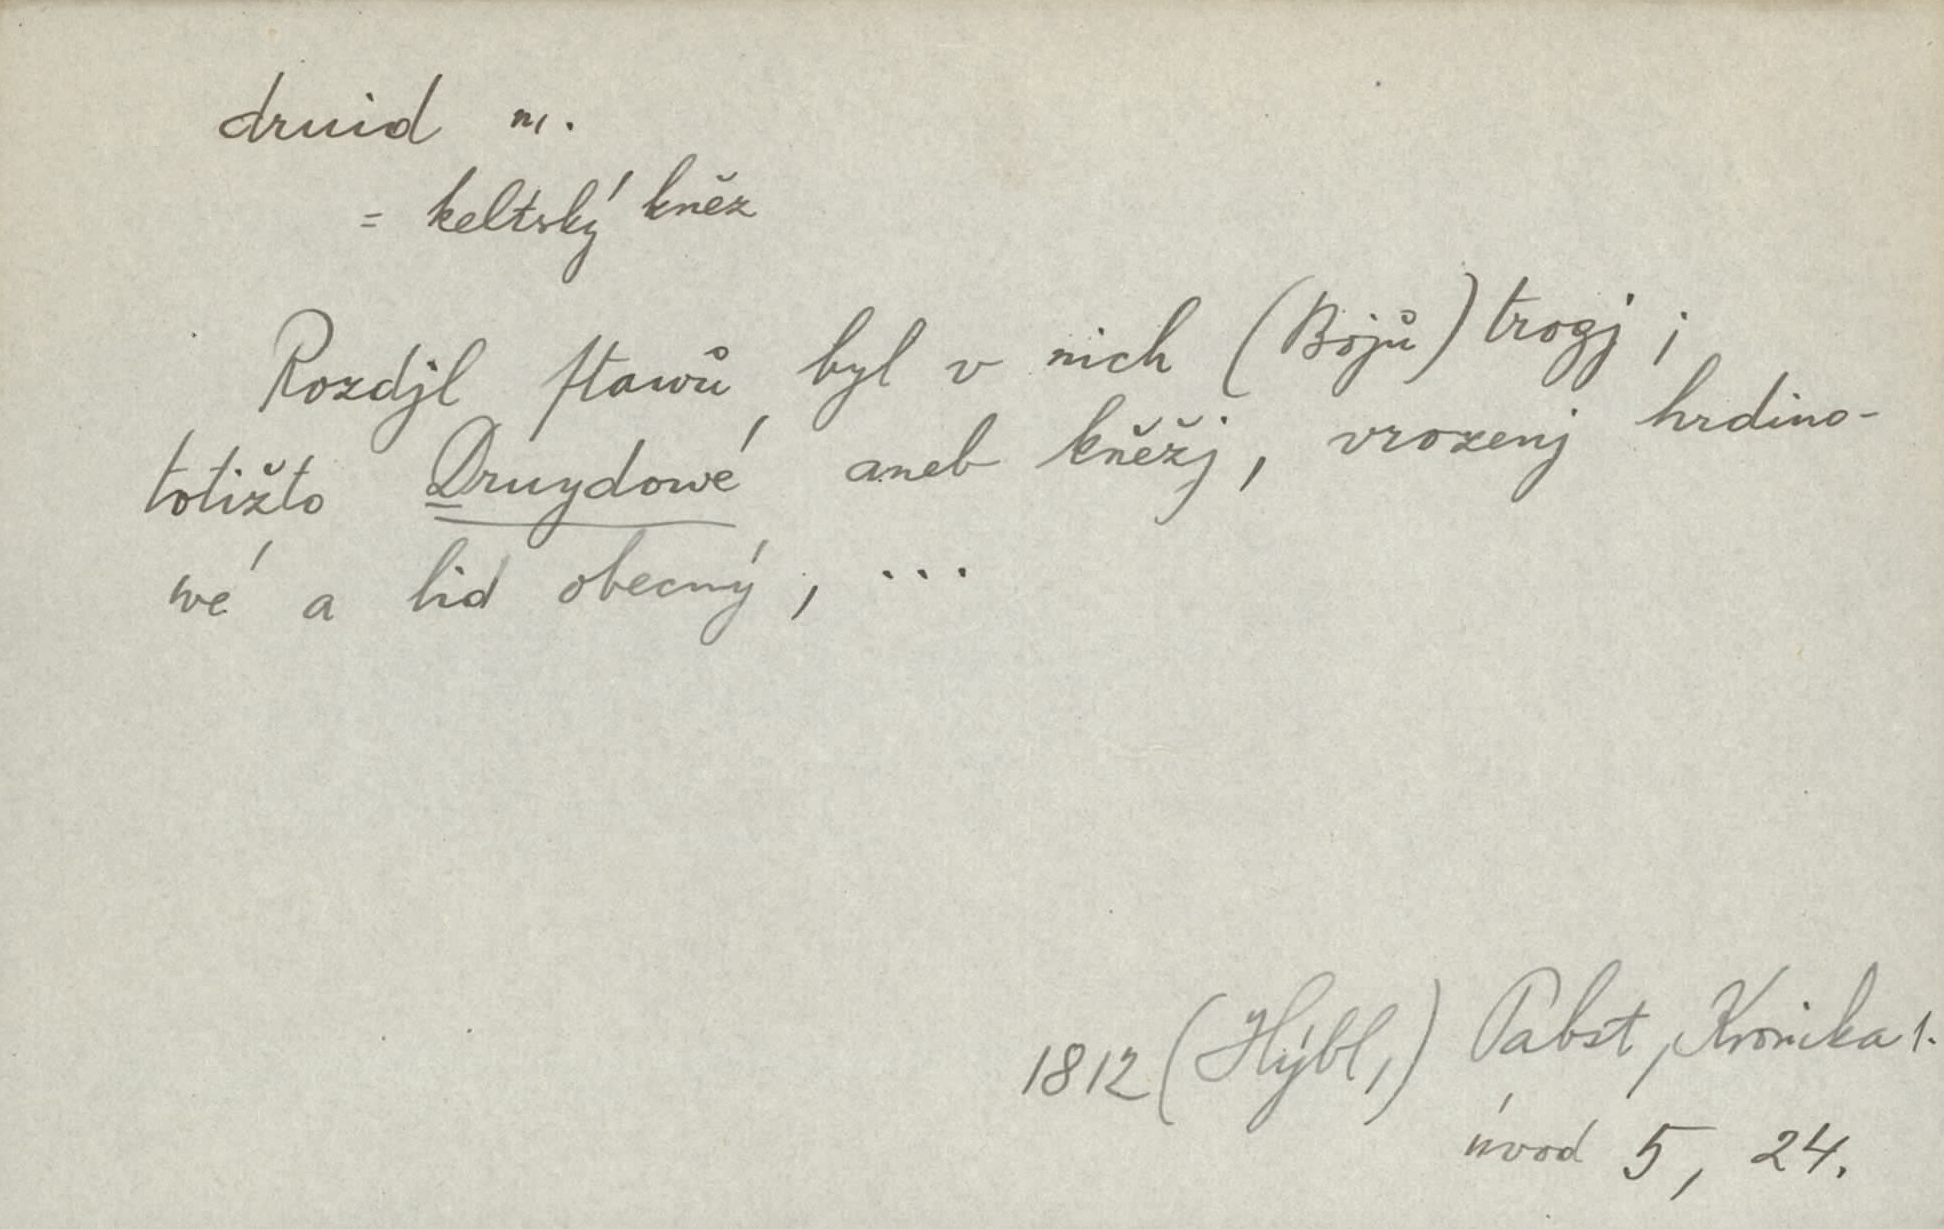 druid m.
= keltský kněz
Rozdjl ſtawů, byl v nich (Bojů) trogj ;
totižto Druydowé aneb kněžj, vrozenj hrdino-
wé a lid obecný, ...
1812 (Hýbl,) Pabst, Kronika 1.
úvod 5, 24.